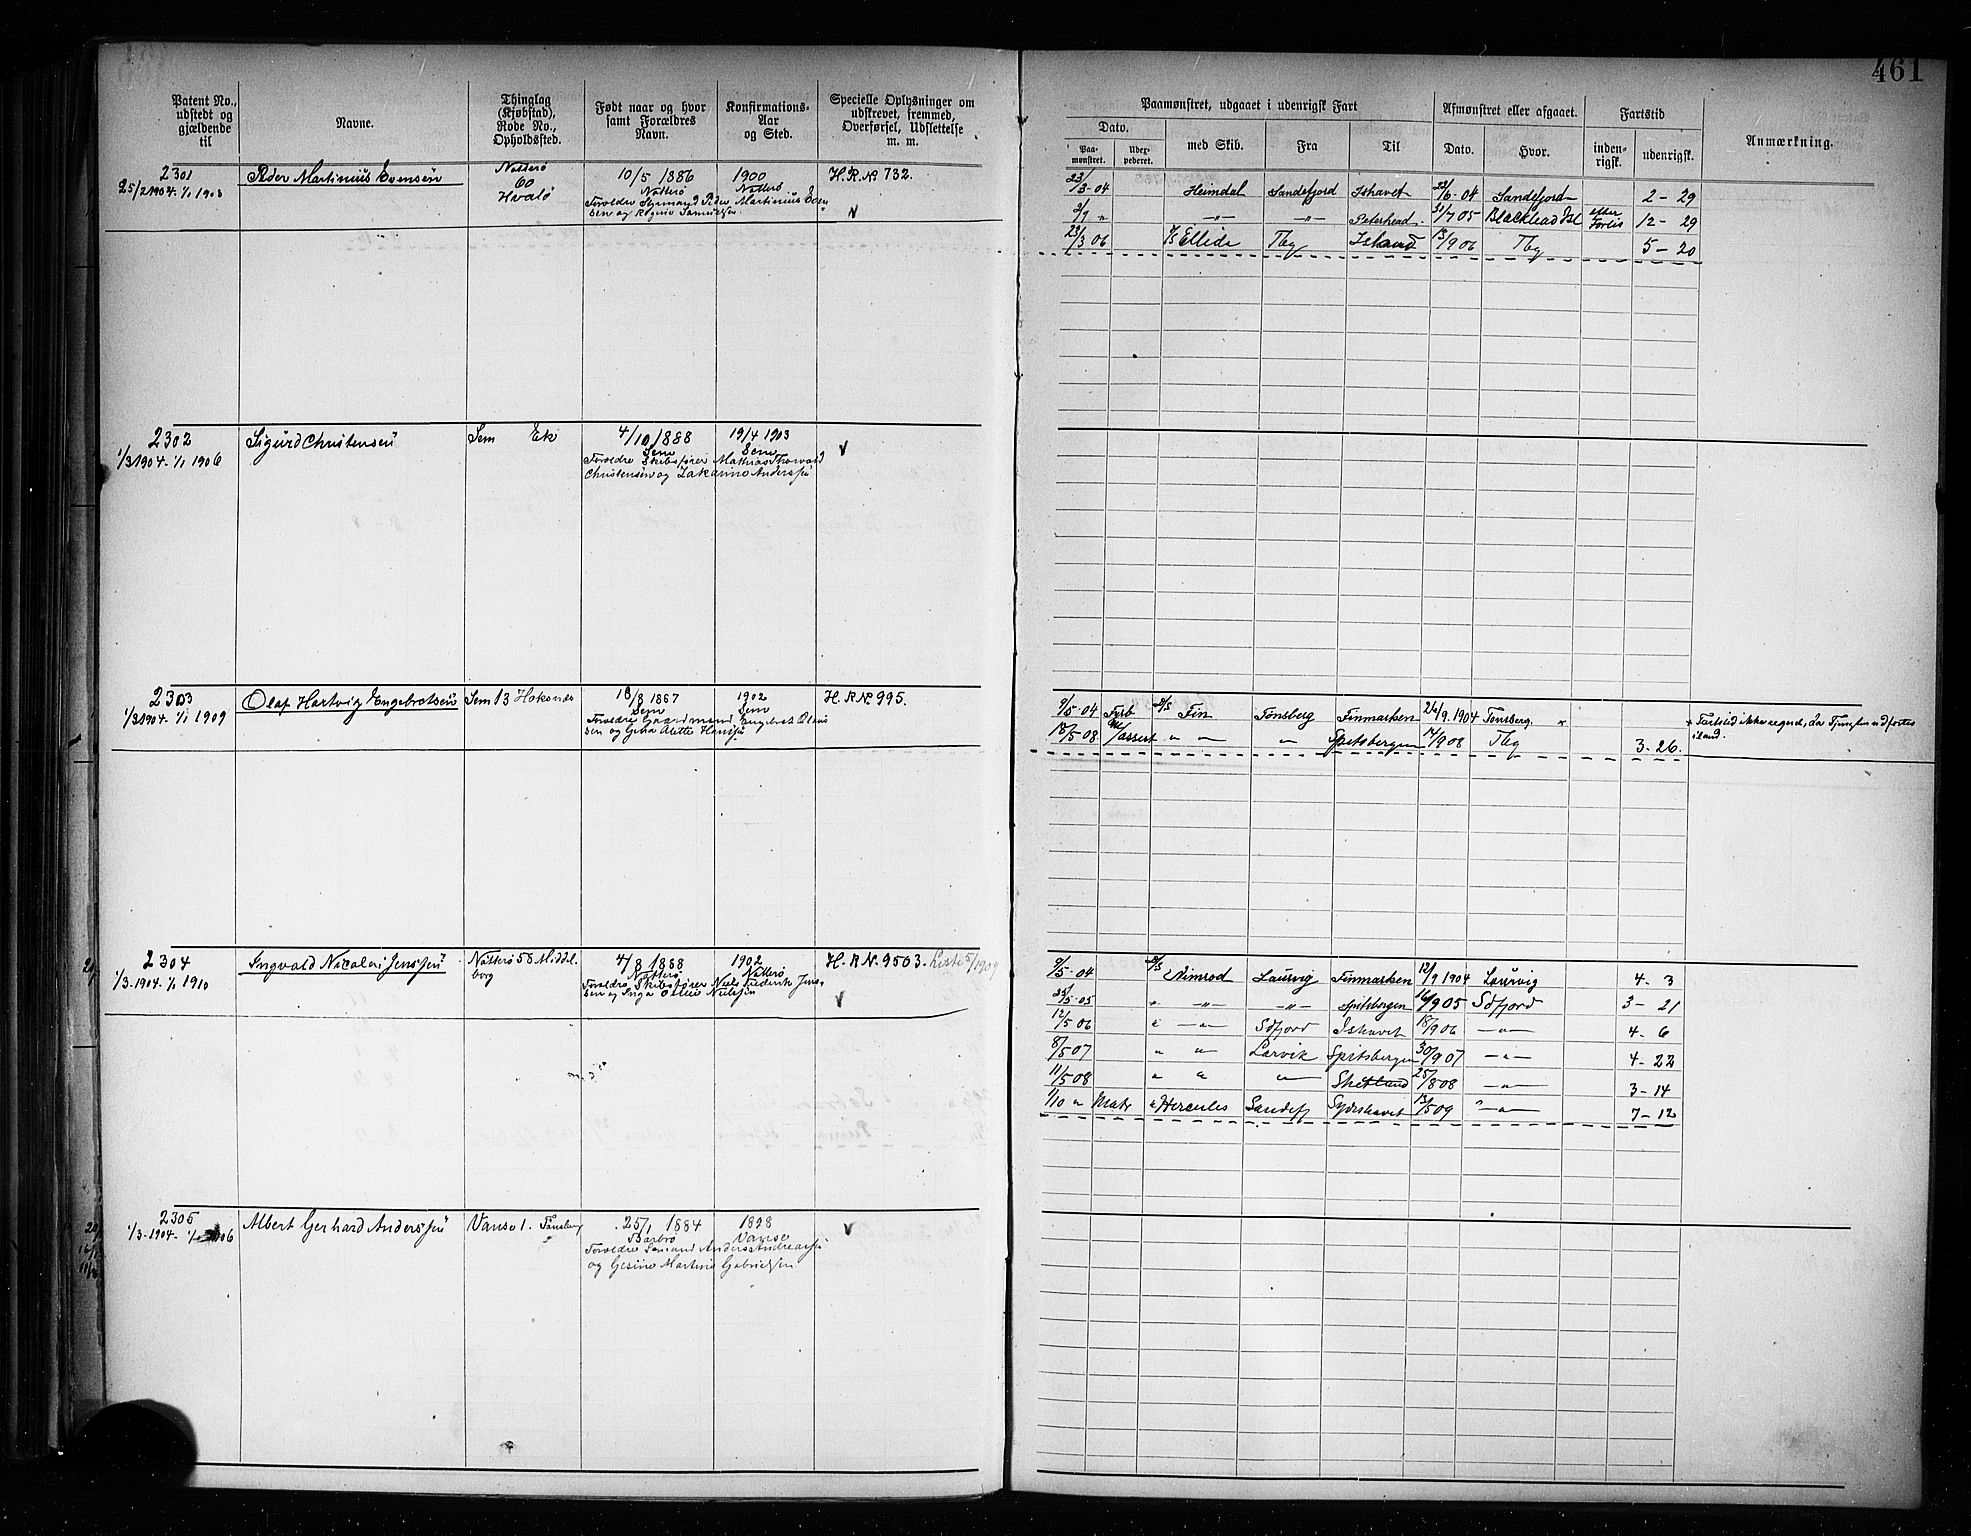 461
Patent No., udstedt og gjældende til
Navne.
Thinglag (Kjøbstad), Rode No., Opholdssted.
Født naar og hvor samt Forældres Navn.
Konfirmations-Aar og Sted.
Specielle Oplysninger om udskrevet, fremmed, Overførsel, Udslettelse m. m.
Paamønstret, udgaaet i udenrigsk Fart
Afmønstret eller afgaaet.
Fartstid
Anmærkning.
Dato.
Paa-mønstret.
Uder-pederet.
med Skib.
Fra
Til
Dato.
Hvor.
inden-rigsk.
udenrigsk.
2301
25/2 1904. 1/1 1908
Peder Martinius Evensen
Nøtterø
60
Hvalø
10/5 1886
Nøtterø
1900
Nøtterø
H. R. No 732.
Forældre Styrmand Peder Martinius Even
sen og Regine Samuelsen.
23/3-04 Heimdal Sandefjord Ishavet 22/6-04 Sandefjord 2-29
2/9 " -"- -"- Peterhead. 31/7 05 Blacklead Isl efter Forlis 12-29
23/3 06 Ellida Tbg Island 13/9 06 Tbg 5-20
2302
1/3 1904. 1/1 1906
Sigurd Christensen
Sem Eik
4/10 1888
Sem
19/4 1903
Sem
Forældre Skibsfører Mathias Thorvald
Christensen og Zakarine Anderssen
2303
1/3 1904. 1/1 1909
Olaf Hartvig Engebretsen
Sem 13 Hakenes
18/8 1887
Sem
1902
Sem
H. R. No 995.
Forældre Gaardmand Engebret Olaus
sen og Gina Alette Hanssen.
9/5-04 Fyrb Fin Tønsberg Finmarken 24/9. 1904 Tønsberg. x
x Fartstid ikke regnet, da Tjenesten udførtes
iland.
12/5 08 " " " Spitsbergen 14/9 08 Tbg 3-26.
2304
1/3-1904. 1/1 1910
Ingvald Nicolai Jenssen
Nøtterø 58 Middel
borg
4/8 1888
Nøtterø
1902
Nøtterø
H. R. No. 9503. Liste 5/1909
Forældre Skibsfører Niels Frederik Jens-
sen og Inga Otilie Nielsen
9/5-04 Nimrod Laurvig Finmarken 12/9 1904 Laurvig 4-3
25/5-05 " -"- -"- Spitsbergen 16/9 05 Sdfjord 3-21
12/5 06 " -"- Sdfjord Ishavet 18/9 06 -"- 4-6
8/5 07 " " Larvik Spitsbergen 30/9 07 -"- 4-22
11/5 08 " " " Shetland 25/8 08 -"- 3-14
1/10 " Matr " Hercules Sandefj Sydishavet 13/5 09 -"- 7-12
2305
1/3-1904. 1/1 1906
Albert Gerhard Anderssen
Vanse 1. Tønsberg
25/1 1884
Barbro
1898
Vanse
Forældre Sømand Anders Andreassen
og Gesine Martine Gabrielsen